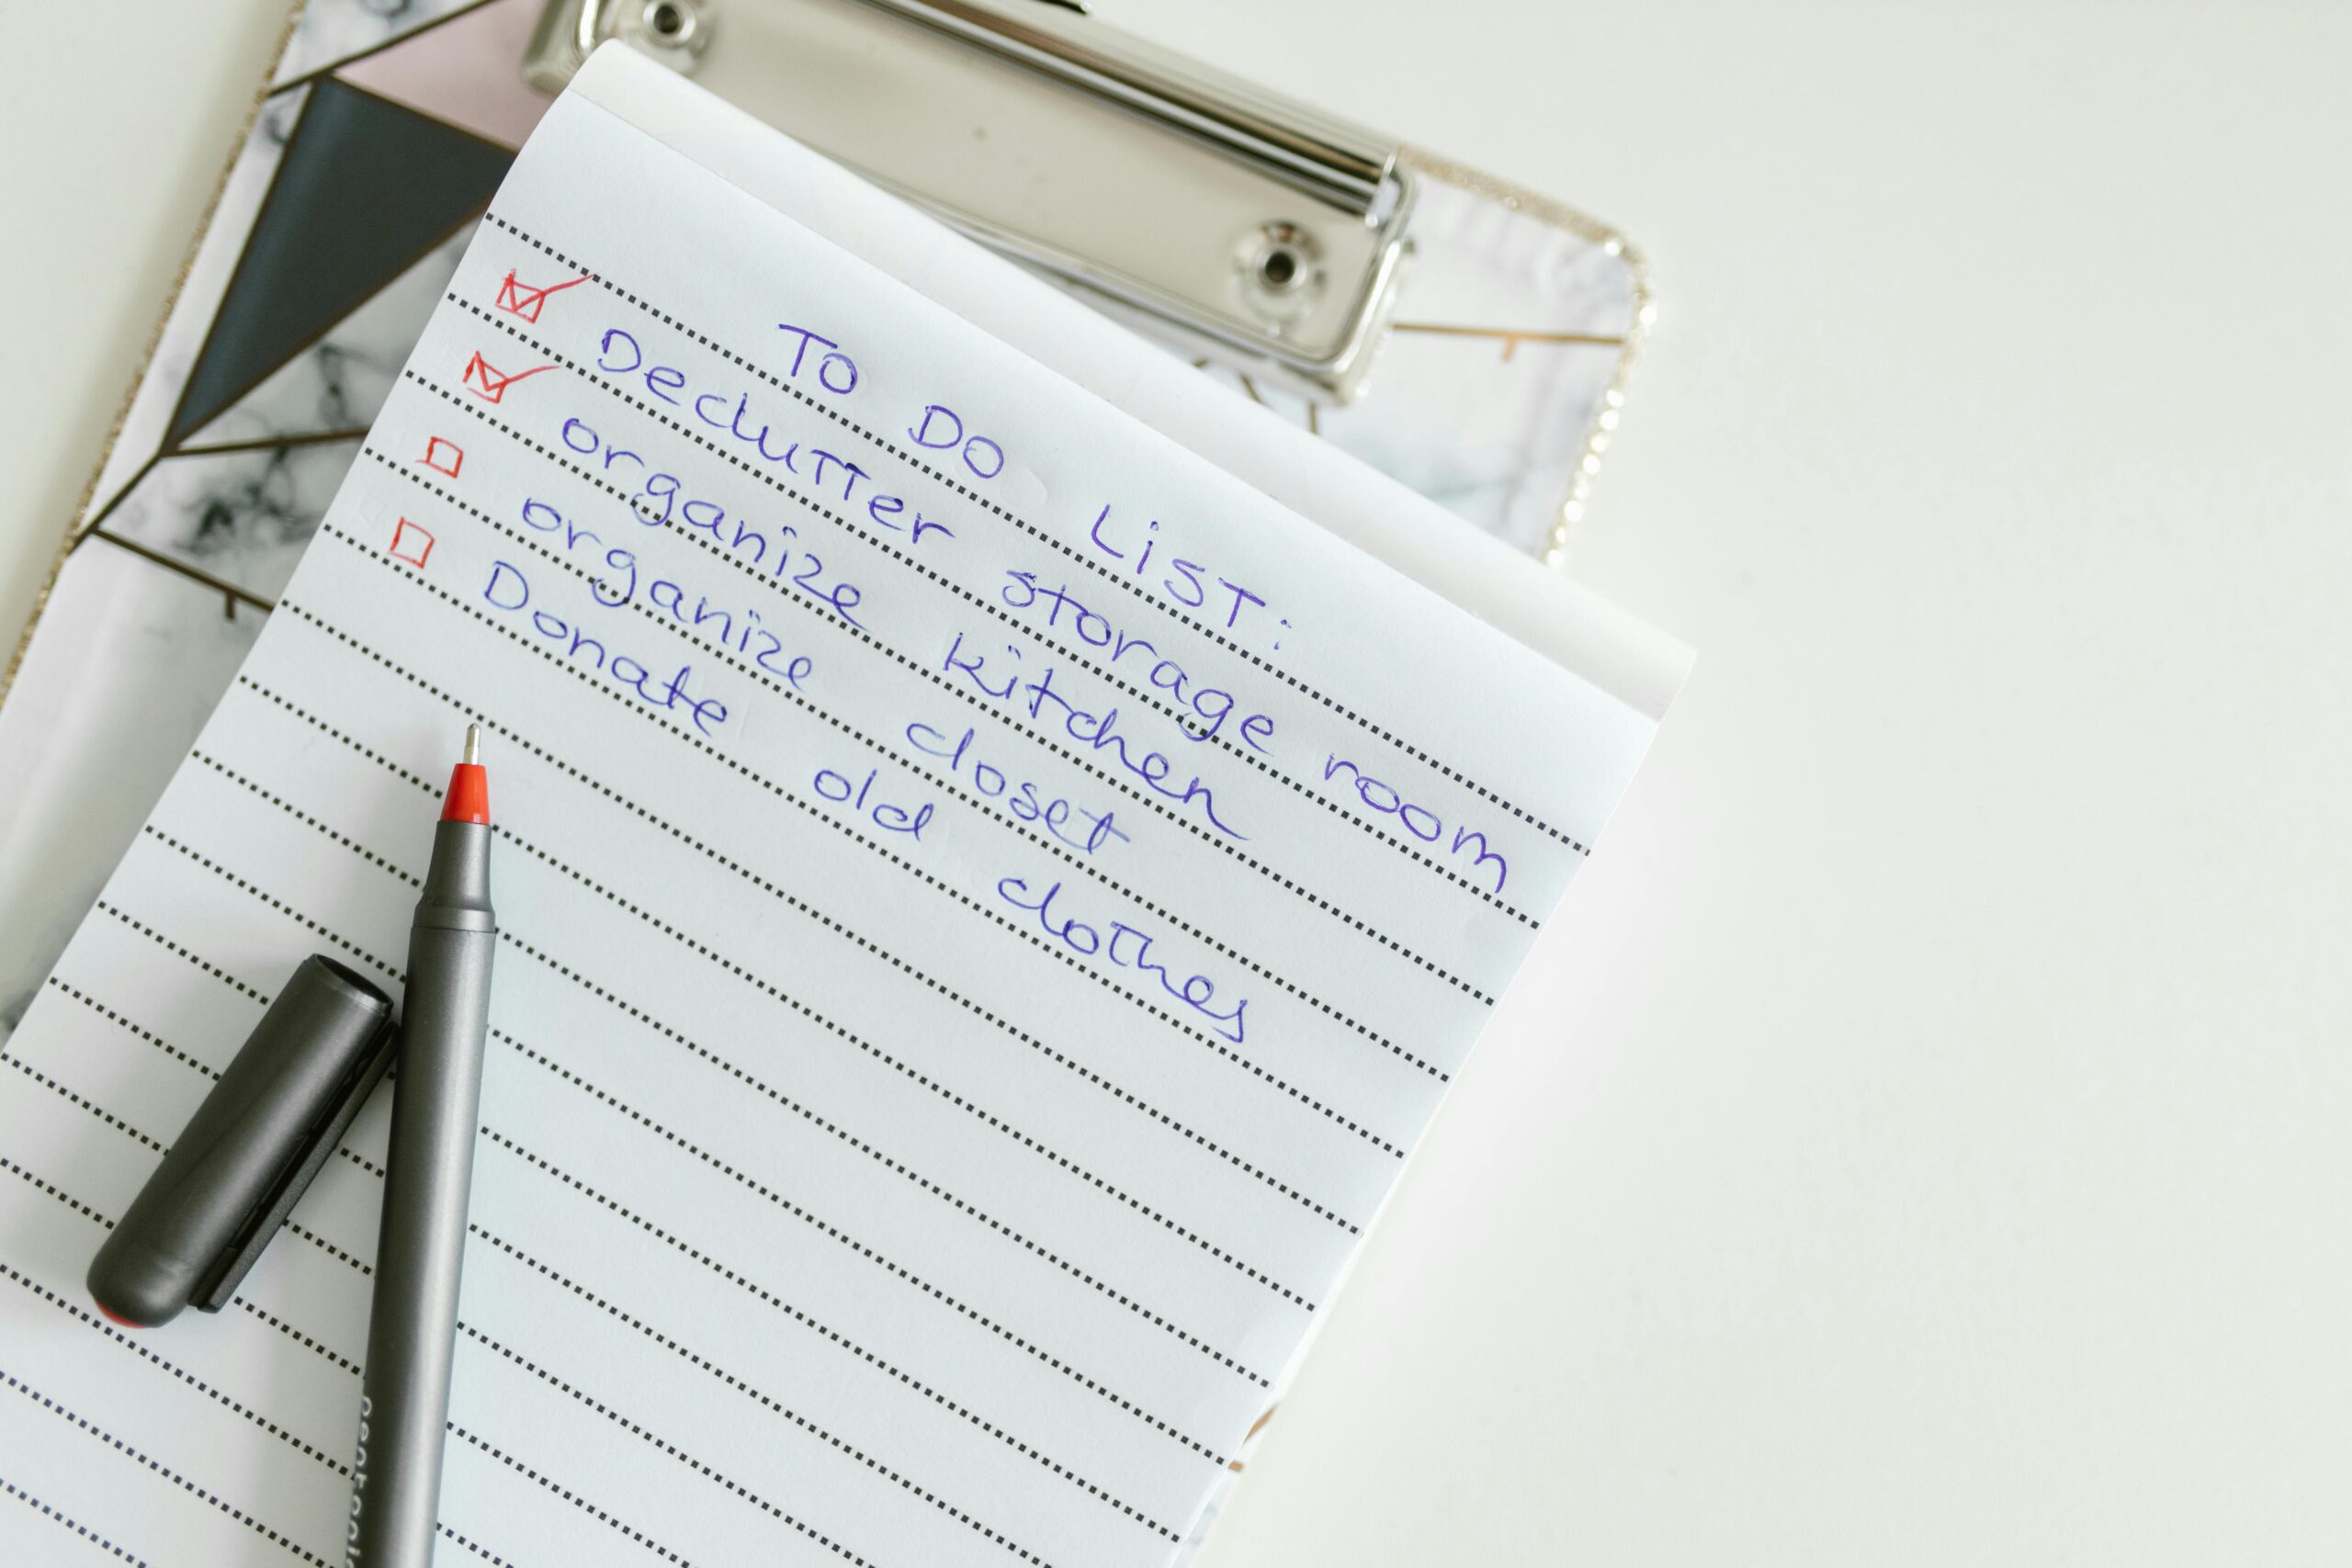 TO DO LiST:
Declutter storage room
organize kitchen
organize closet
Donate old clothes